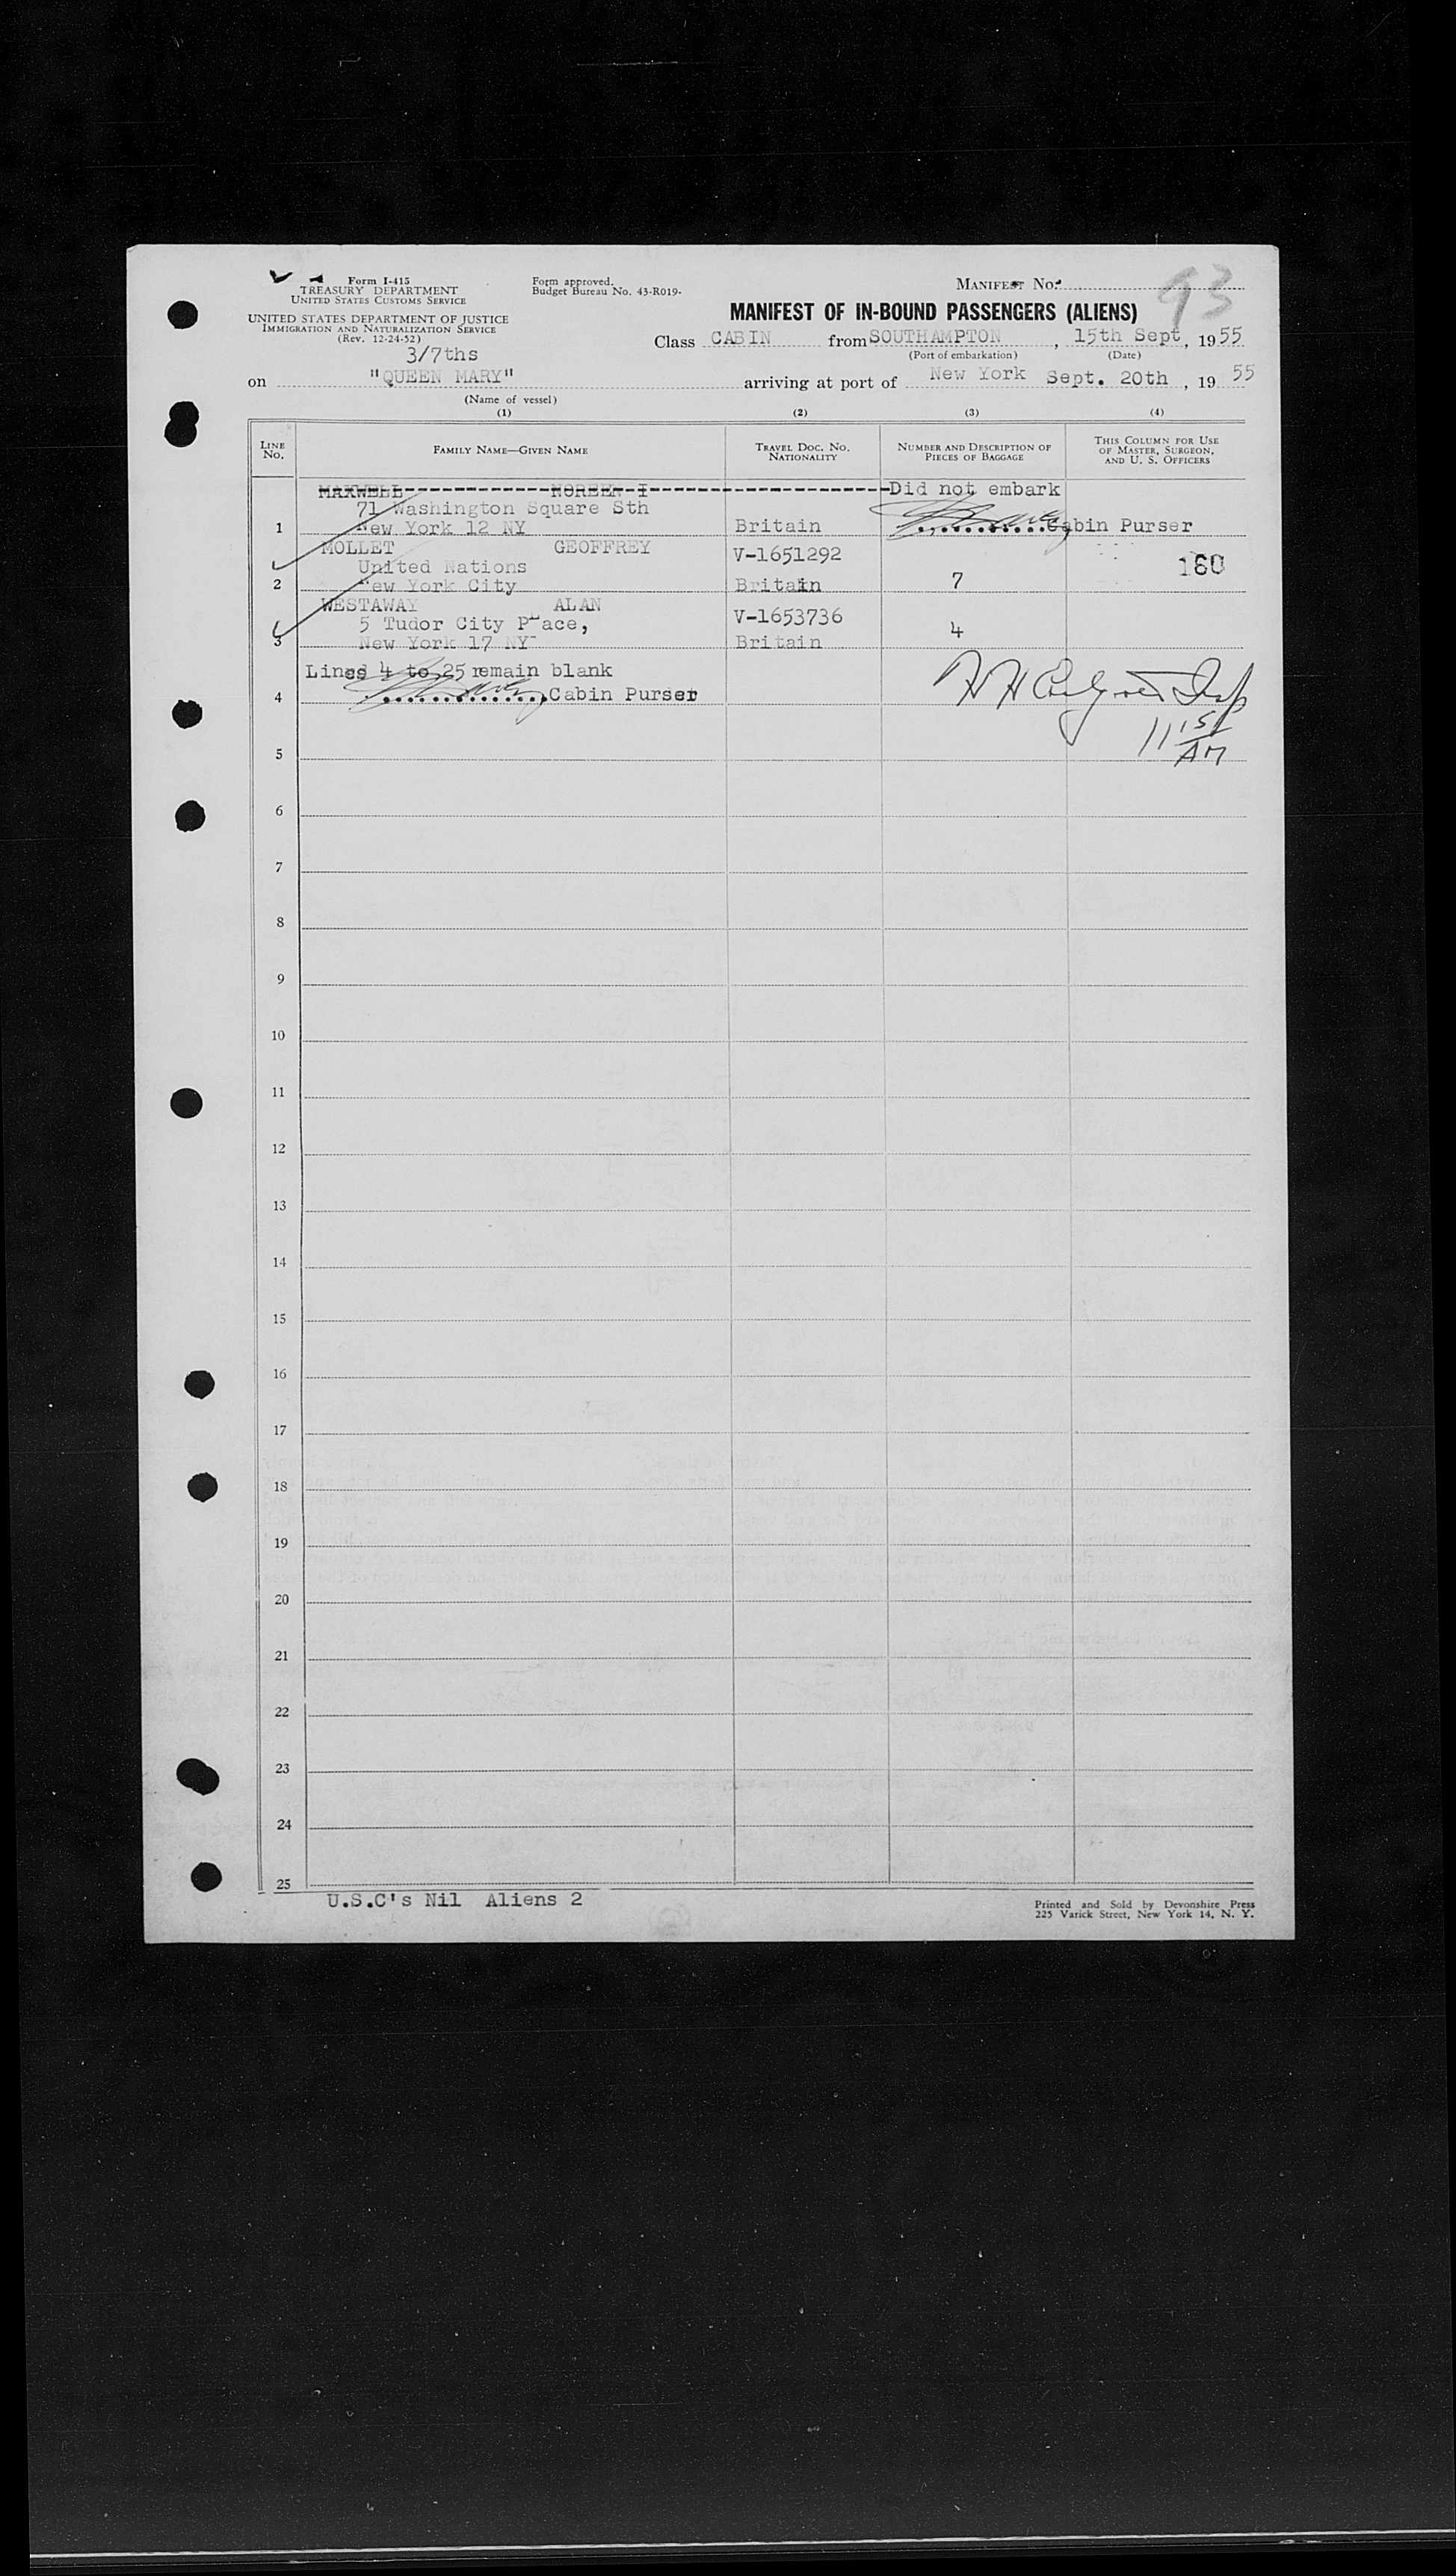 Form I-415
TREASURY DEPARTMENT
UNITED STATES CUSTOMS SERVICE
UNITED STATES DEPARTMENT OF JUSTICE
IMMIGRATION AND NATURALIZATION SERVICE
(Rev. 12-24-52)
3/7ths
Form approved.
Budget Bureau No. 43-R019-
MANIFEST No.
93
MANIFEST OF IN-BOUND PASSENGERS (ALIENS)
Class CABIN from SOUTHAMPTON, 15th Sept, 1955
(Port of embarkation) (Date)
on "QUEEN MARY" arriving at port of New York Sept. 20th, 19 55
(Name of vessel)
(1) (2) (3) (4)
LINE No. FAMILY NAME—GIVEN NAME TRAVEL DOC. No. NATIONALITY NUMBER AND DESCRIPTION OF PIECES OF BAGGAGE THIS COLUMN FOR USE OF MASTER, SURGEON, AND U. S. OFFICERS
MAXWELL NOREEN I Did not embark
71 Washington Square Sth
1 New York 12 NY Britain Cabin Purser
MOLLET GEOFFREY V-1651292
United Nations 160
2 New York City Britain 7
WESTAWAY ALAN V-1653736
5 Tudor City Place, 4
3 New York 17 NY Britain
Lines 4 to 25 remain blank
4 Cabin Purser
H H Insp
11 15
AM
5
6
7
8
9
10
11
12
13
14
15
16
17
18
19
20
21
22
23
24
25
U.S.C's Nil Aliens 2
Printed and Sold by Devonshire Press
225 Varick Street, New York 14, N. Y.